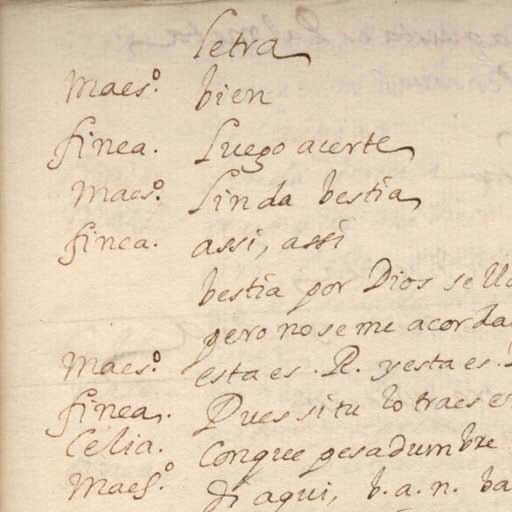 letra
Maes.º bien
finea. Luego acerte
Maes.º linda bestia
finea. assi, assi
bestia por Dios se lla
pero no se me acorda
Maes.º esta es. R. y esta es.
finea. Pues si tu lo traes e
Celia. Con que pesadumbre
Maes.º di aqui, b. a. n. ba